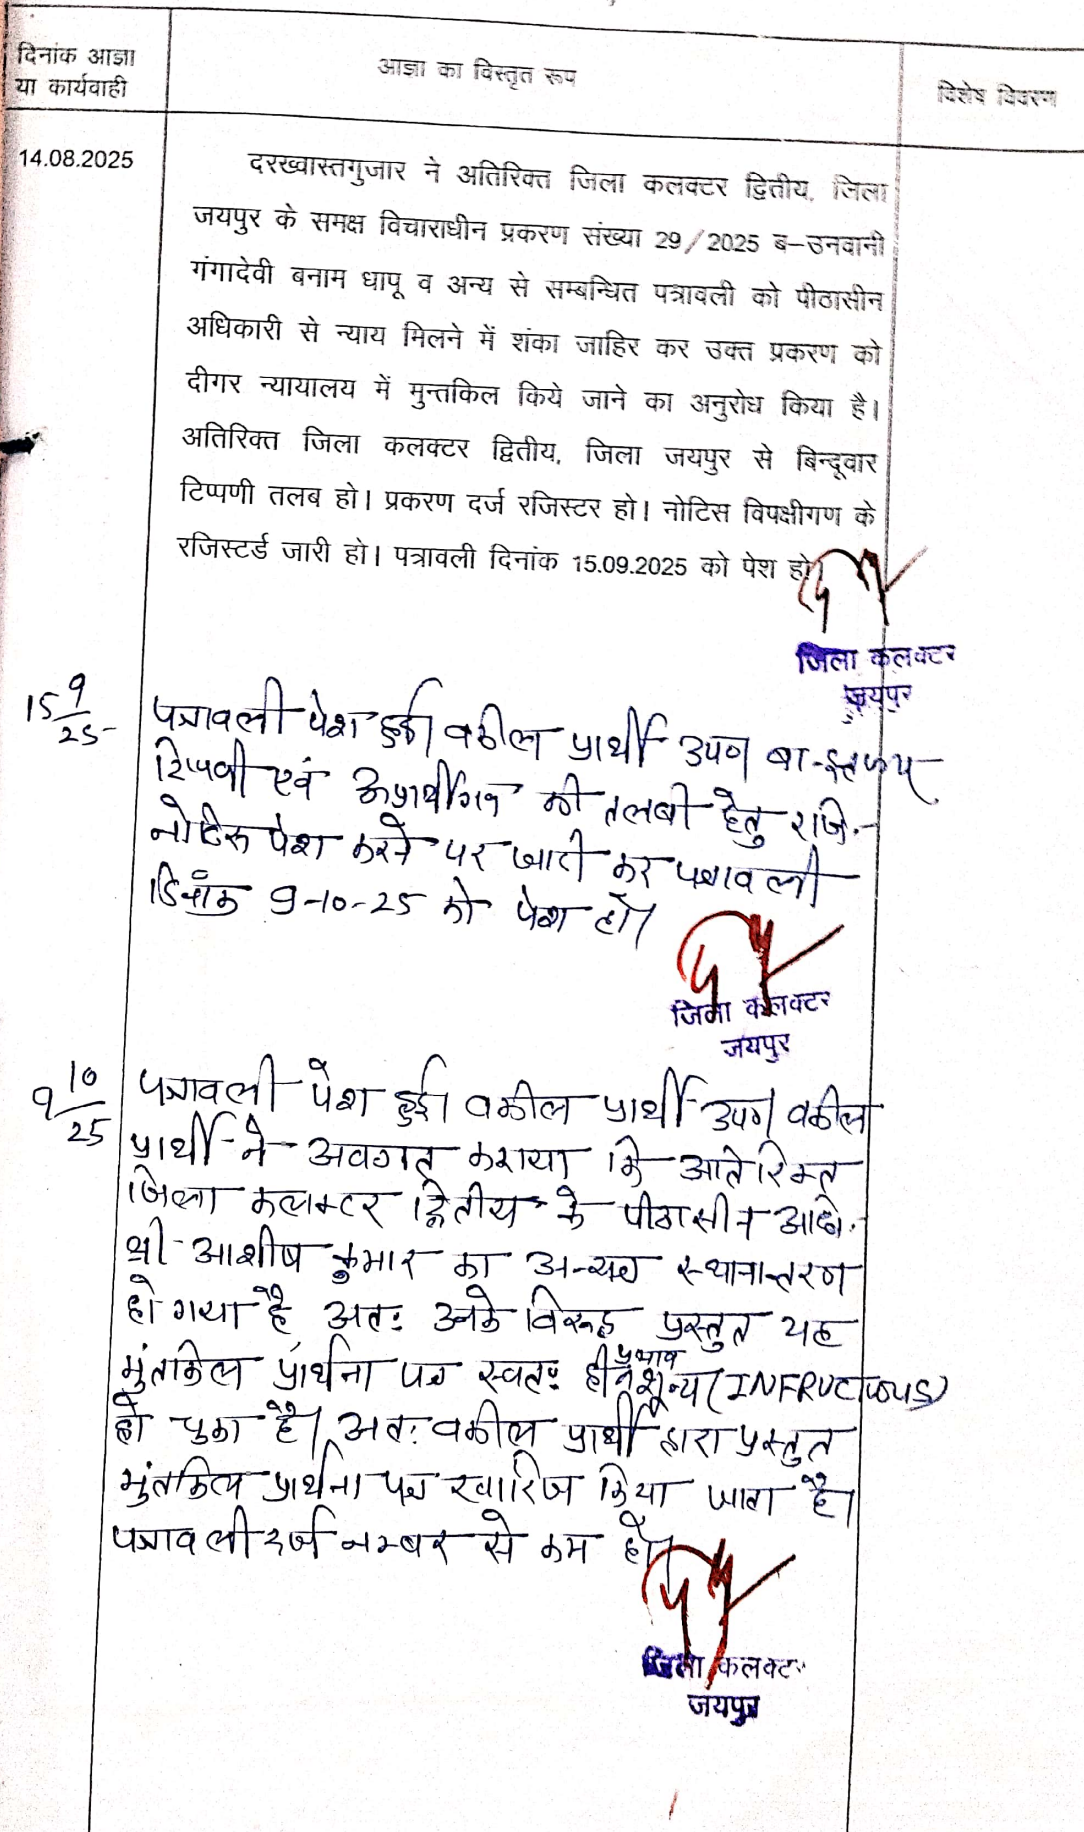 दिनांक आज्ञा
या कार्यवाही
आज्ञा का विस्तृत रूप
विशेष विवरण
14.08.2025
दरख्वास्तगुजार ने अतिरिक्त जिला कलक्टर द्वितीय, जिला
जयपुर के समक्ष विचाराधीन प्रकरण संख्या 29/2025 ब-उनवानी
गंगादेवी बनाम धापू व अन्य से सम्बन्धित पत्रावली को पीठासीन
अधिकारी से न्याय मिलने में शंका जाहिर कर उक्त प्रकरण को
दीगर न्यायालय में मुन्तकिल किये जाने का अनुरोध किया है।
अतिरिक्त जिला कलक्टर द्वितीय, जिला जयपुर से बिन्दूवार
टिप्पणी तलब हो। प्रकरण दर्ज रजिस्टर हो। नोटिस विपक्षीगण के
रजिस्टर्ड जारी हो। पत्रावली दिनांक 15.09.2025 को पेश हो।
जिला कलक्टर
जयपुर
15 9/25
पत्रावली पेश हुई। वकील प्रार्थी उप०
टिप्पणी एवं अप्रार्थीगण की तलबी हेतु रजि.
नोटिस पेश करने पर जारी कर पत्रावली
दिनांक 9-10-25 को पेश हो।
जिला कलक्टर
जयपुर
9 10/25
पत्रावली पेश हुई। वकील प्रार्थी उप० वकील
प्रार्थी ने अवगत कराया कि अतिरिक्त
जिला कलक्टर द्वितीय के पीठासीन अधि.
श्री आशीष कुमार का अन्यत्र स्थानान्तरण
हो गया है अतः उनके विरूद्ध प्रस्तुत यह
मुंतकिल प्रार्थना पत्र स्वतः ही प्रभाव शून्य (INFRUCTUOUS)
हो चुका है। अतः वकील प्रार्थी द्वारा प्रस्तुत
मुंतकिल प्रार्थना पत्र खारिज किया जाता है।
पत्रावली दर्ज नम्बर से कम हो।
जिला कलक्टर
जयपुर